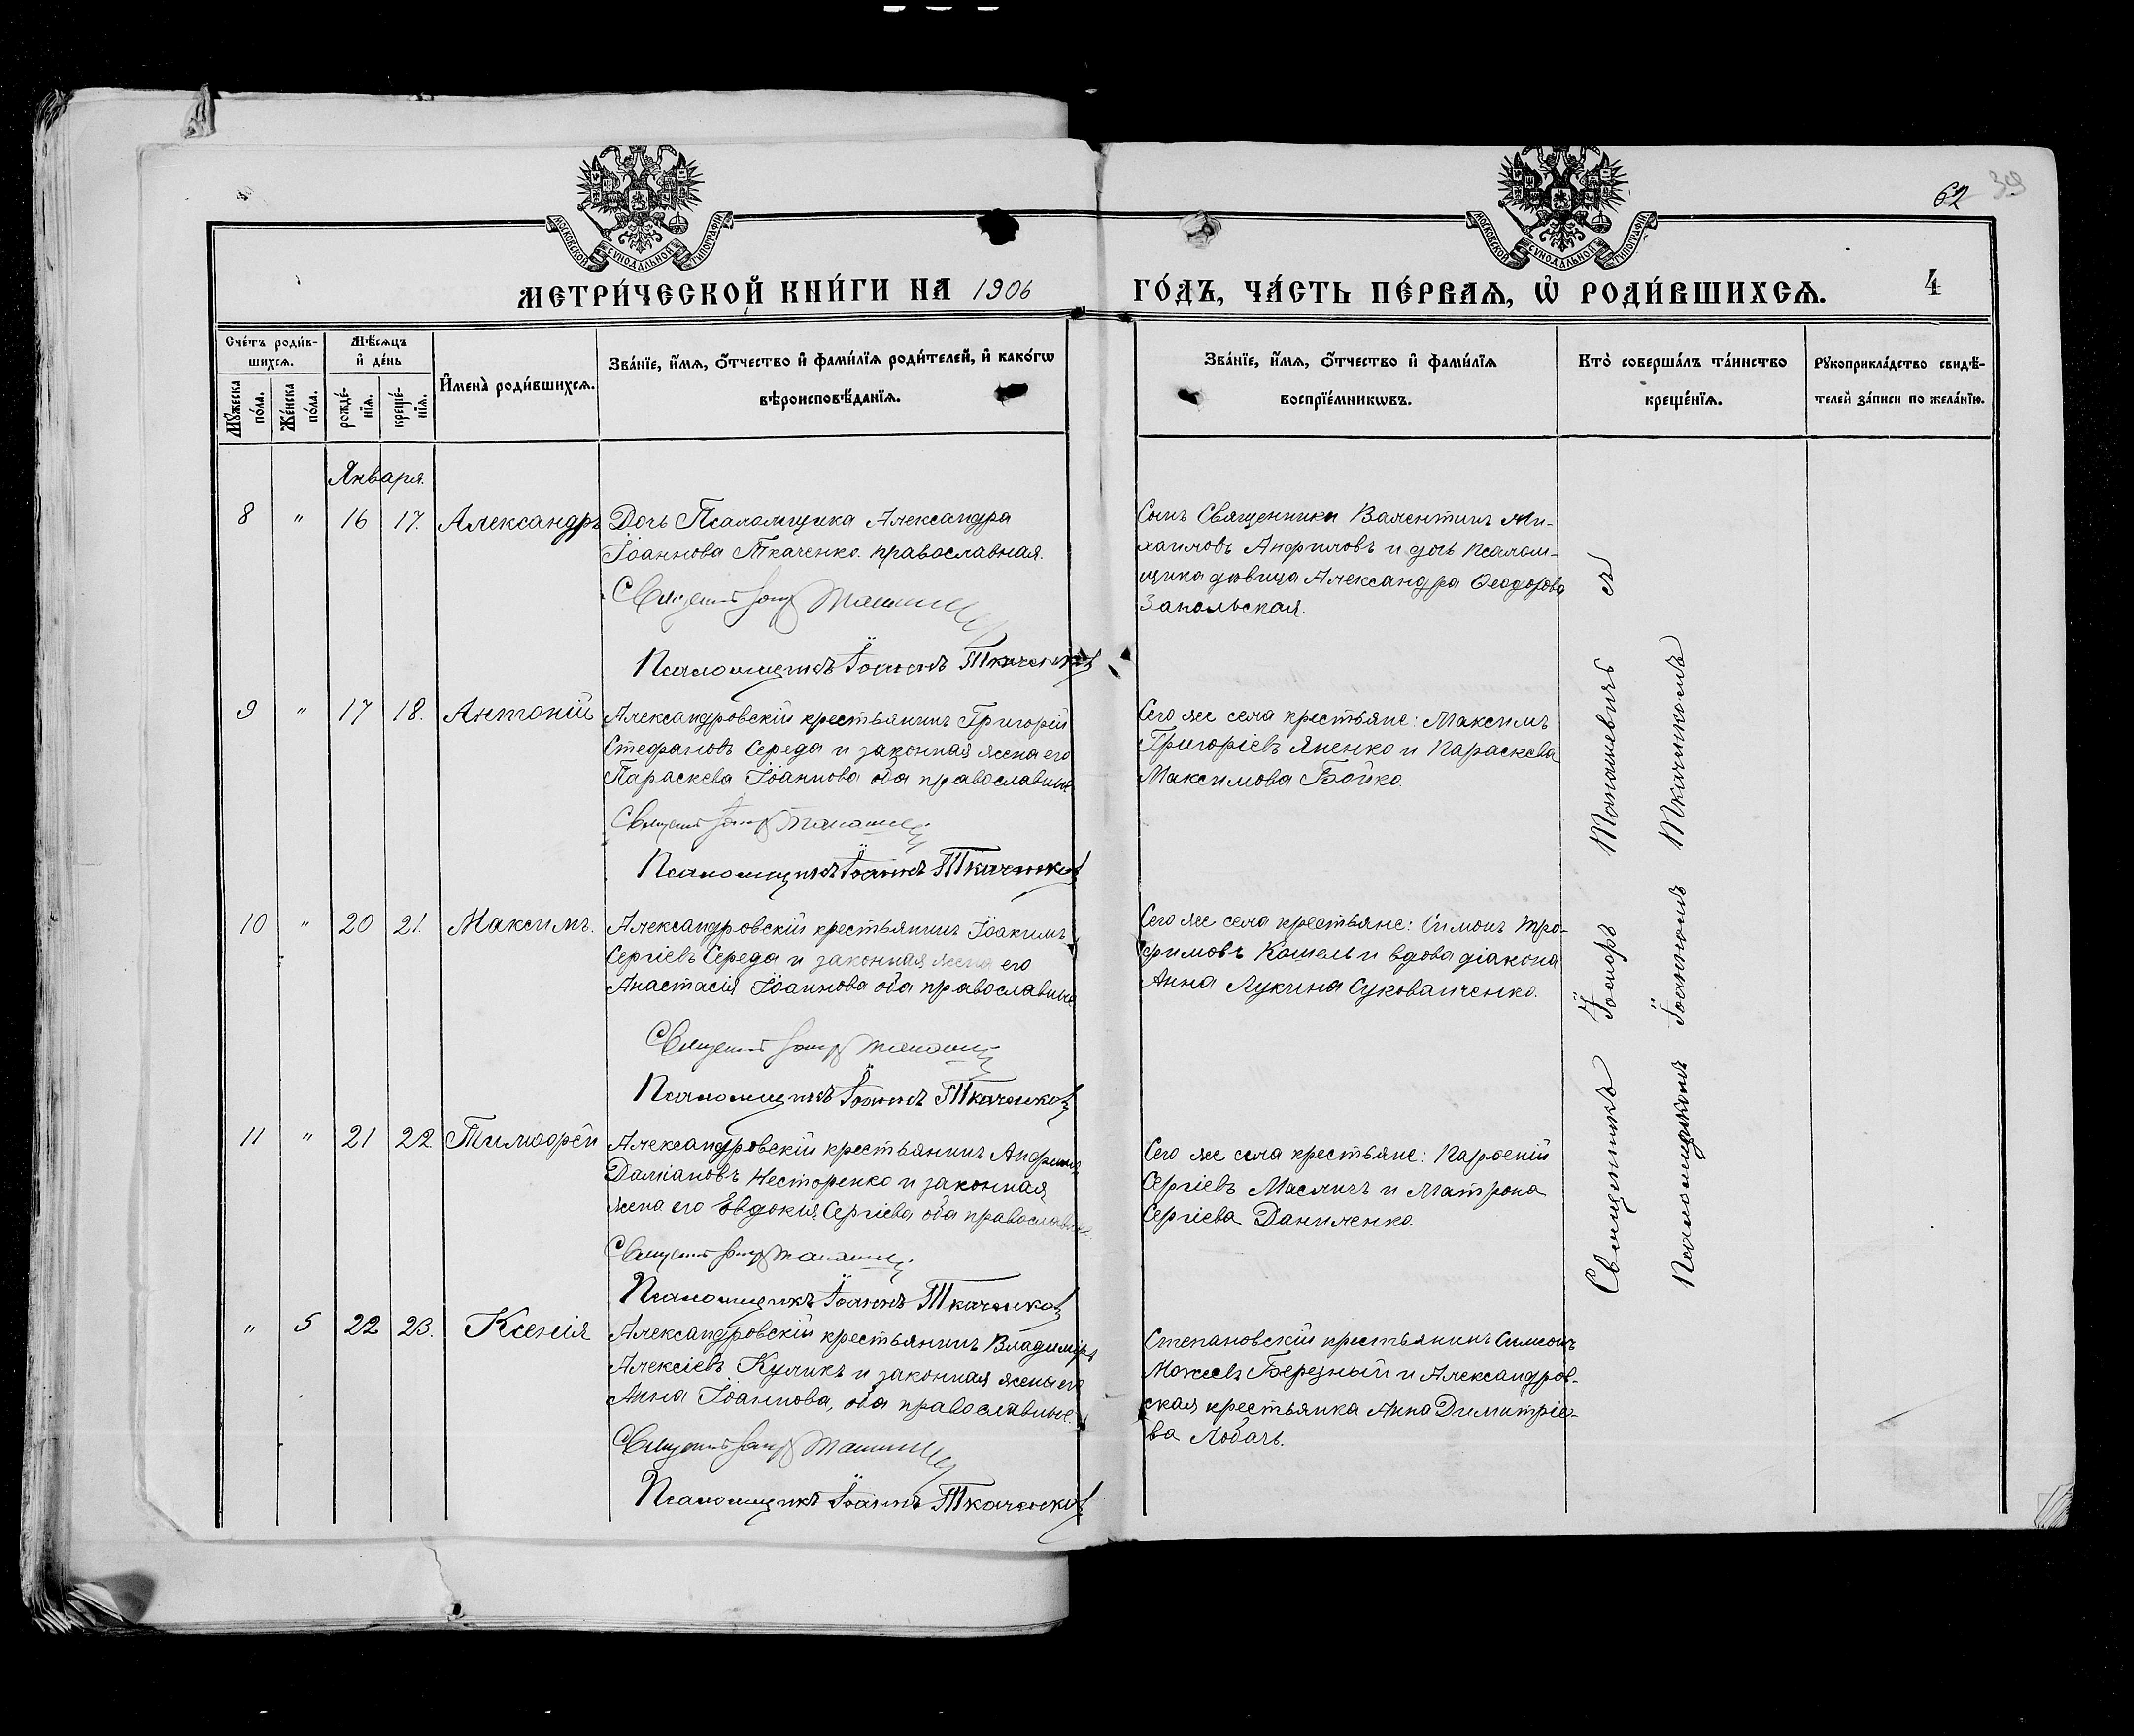 МОСКОВСКОЙ СУНОДАЛЬНОЙ ТИПОГРАФІИ
МОСКОВСКОЙ СУНОДАЛЬНОЙ ТИПОГРАФІИ
62 39
МЕТРИ́ЧЕСКОЙ КНИ́ГИ НА 1906
ГО́ДЪ, ЧА́СТЬ ПЕ́РВАѦ, Ѡ҆ РОДИ́ВШИХСѦ.
4
Сче́тъ роди́в-
шихсѧ.
Мꙋ́жеска по́ла.
Же́нска по́ла.
Мѣ́сѧцъ
и҆ де́нь
рожде́-
нїѧ.
креще́-
нїѧ.
И҆мена̀ роди́вшихсѧ.
Зва́нїе, и҆́мѧ, ѻ҆́тчество и҆ фами́лїѧ роди́телей, и҆ како́гѡ
вѣроисповѣ́данїѧ.
Зва́нїе, и҆́мѧ, ѻ҆́тчество и҆ фами́лїѧ
воспрїе́мникѡвъ.
Кто̀ соверша́лъ та́инство
креще́нїѧ.
Рꙋкоприкла́дство свидѣ́-
телей за́писи по жела́нїю.
Января.
8 " 16 17. Александръ
Дочь Псаломщика Александра
Іоаннова Ткаченко. православная.
Псаломщикъ Іоаннъ Ткаченко
Сынъ Священника Валентинъ Ми-
хаиловъ Анфиловъ и дочь псалом-
щика дѣвица Александра Ѳеодорова
Закольская.
9 " 17 18. Антоній
Александровскій крестьянинъ Григорій
Стефановъ Середа и законная жена его
Параскева Іоаннова оба православные
Псаломщикъ Іоаннъ Ткаченко
Сего же села крестьяне: Максимъ
Григоріевъ Яненко и Параскева
Максимова Бойко.
10 " 20 21. Максимъ.
Александровскій крестьянинъ Іоакимъ
Сергіевъ Середа и законная жена его
Анастасія Іоаннова оба православные
Псаломщикъ Іоаннъ Ткаченко
Сего же села крестьяне: Симонъ Тро-
фимовъ Кошель и вдова діакона
Анна Лукина Суковатченко.
11 " 21 22 Тимофей
Александровскій крестьянинъ
Даміановъ Несторенко и законная
жена его Евдокія Сергіева оба православные
Псаломщикъ Іоаннъ Ткаченко
Сего же села крестьяне: Парѳеній
Сергіевъ Масличъ и Матрона
Сергіева Даниленко.
" 5 22 23. Ксенія
Александровскій крестьянинъ Владиміръ
Алексіевъ Куликъ и законная жена его
Анна Іоаннова, оба православные.
Псаломщикъ Іоаннъ Ткаченко
Степановскій крестьянинъ Симеонъ
Моисеевъ Березный и Александров-
ская крестьянка Анна Димитріе-
ва Лобачъ.
Священникъ
съ
Псаломщикомъ Іоанномъ Ткаченкомъ